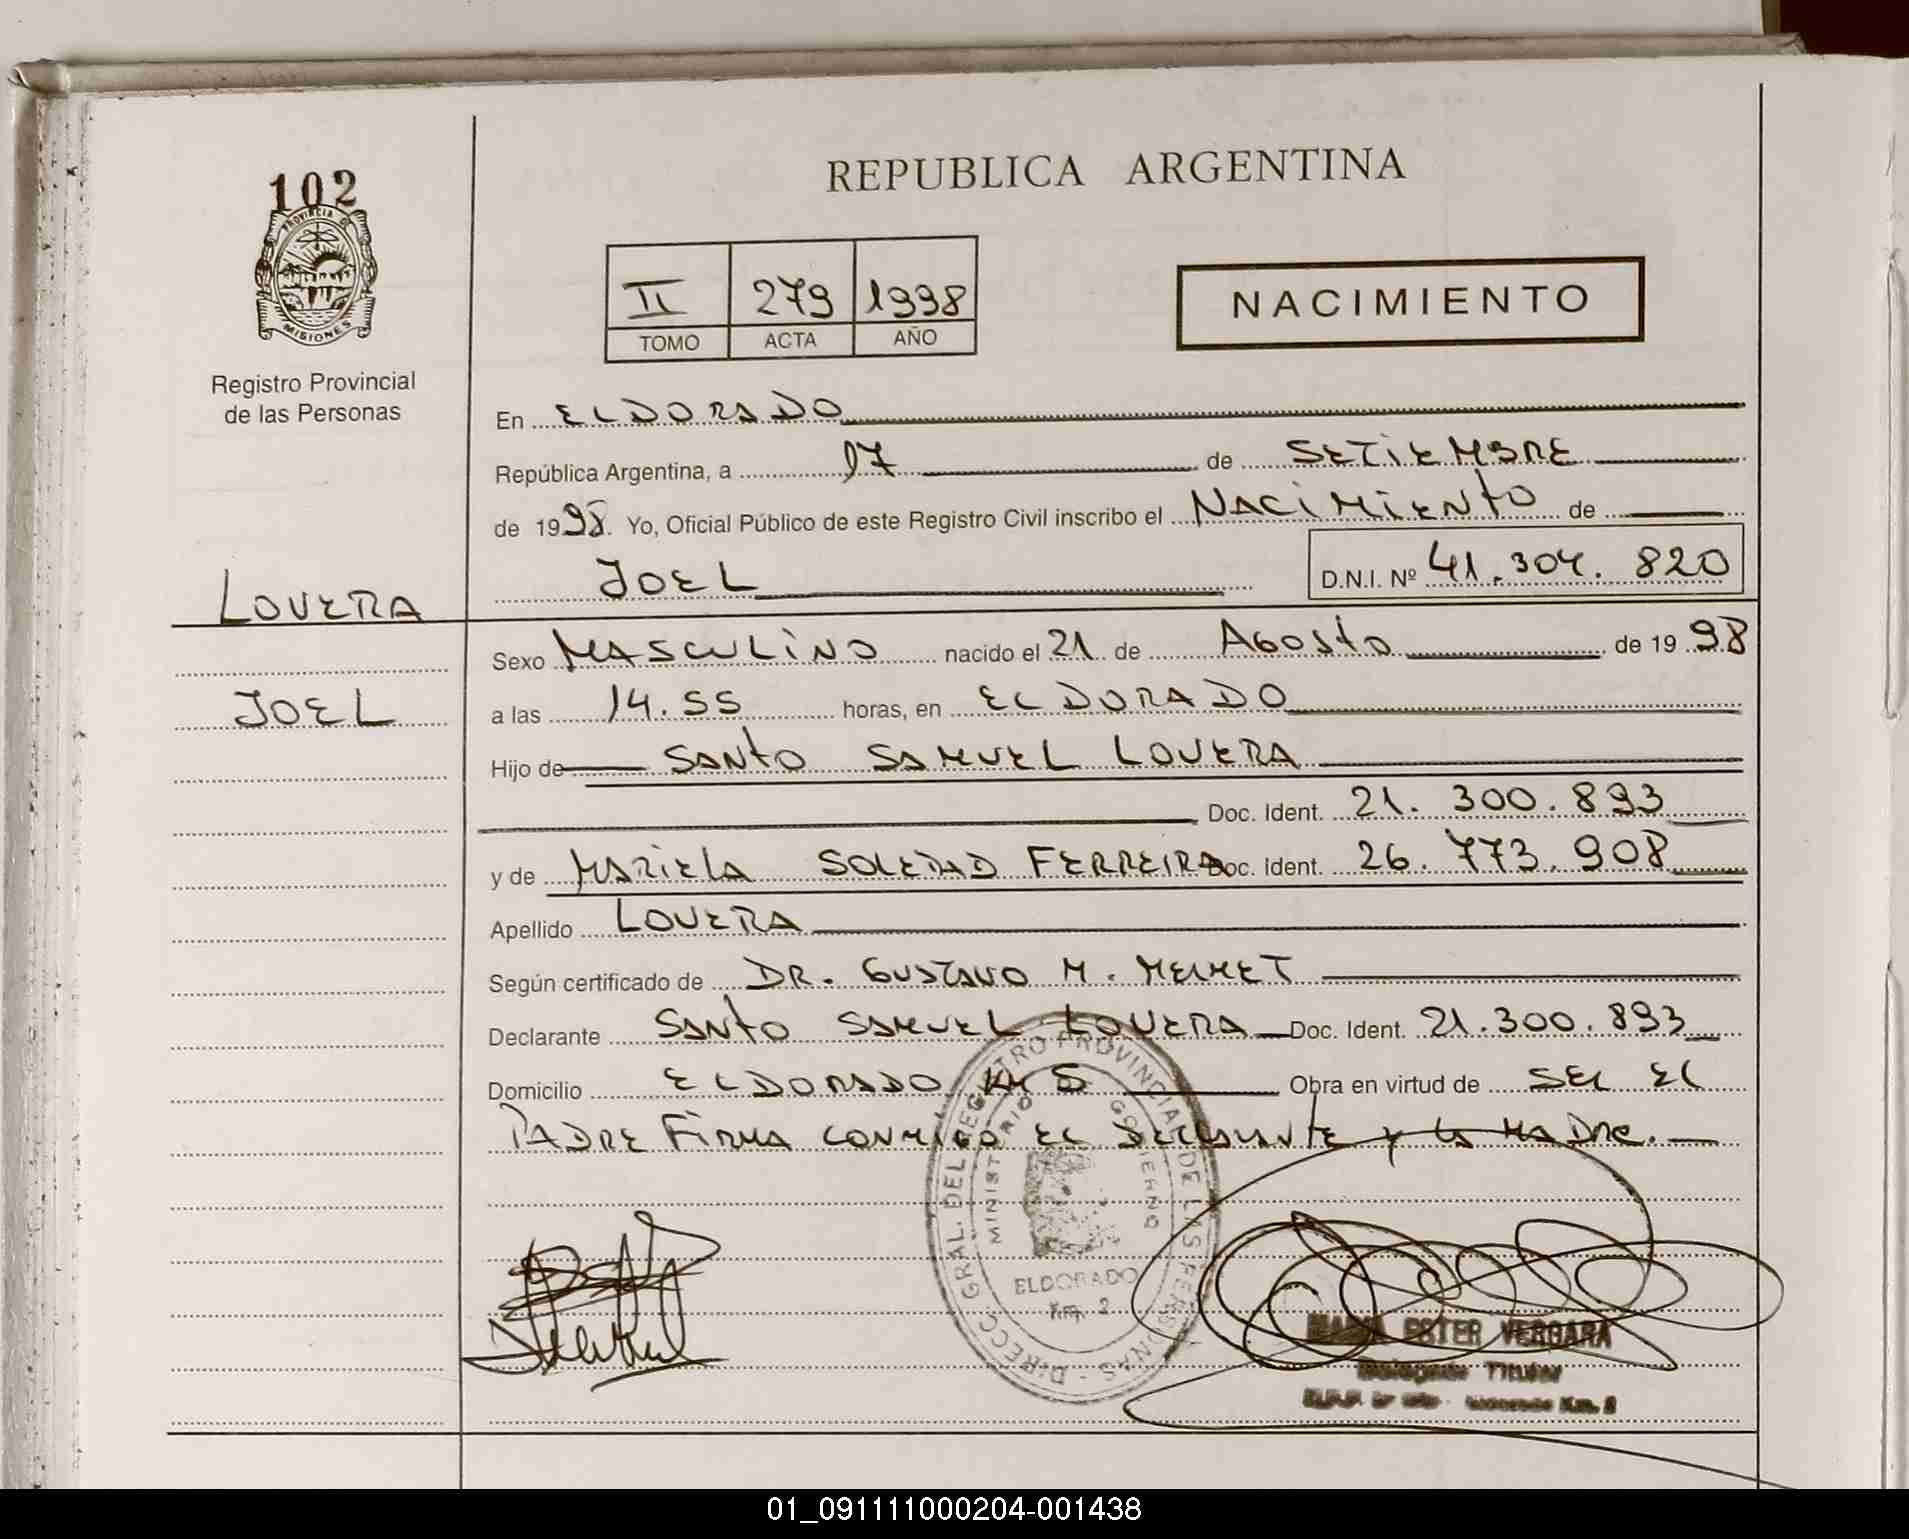 102
PROVINCIA DE
MISIONES
Registro Provincial
de las Personas
LOVERA
JOEL
REPUBLICA ARGENTINA
II 279 1998
TOMO ACTA AÑO
NACIMIENTO
En ELDORADO
República Argentina, a 17 de SETIEMBRE
de 1998. Yo, Oficial Público de este Registro Civil inscribo el NACIMIENTO de
JOEL D.N.I. Nº 41.304.820
Sexo MASCULINO nacido el 21 de AGOSTO de 1998
a las 14.55 horas, en ELDORADO
Hijo de SANTO SAMUEL LOVERA
Doc. Ident. 21.300.893
y de MARIELA SOLEDAD FERREIRA Doc. Ident. 26.773.908
Apellido LOVERA
Según certificado de DR. GUSTAVO M.
Declarante SANTO SAMUEL LOVERA Doc. Ident. 21.300.893
Domicilio ELDORADO KM 5 Obra en virtud de SER EL
PADRE FIRMA CONMIGO EL DECLARANTE y LA MADRE.
DIRECC. GRAL. DEL REGISTRO PROVINCIAL DE LAS PERSONAS
MINISTERIO GOBIERNO
ELDORADO
Km. 2
MARIA ESTER VERGARA
Delegada Titular
Eldorado Km. 2
01_091111000204-001438